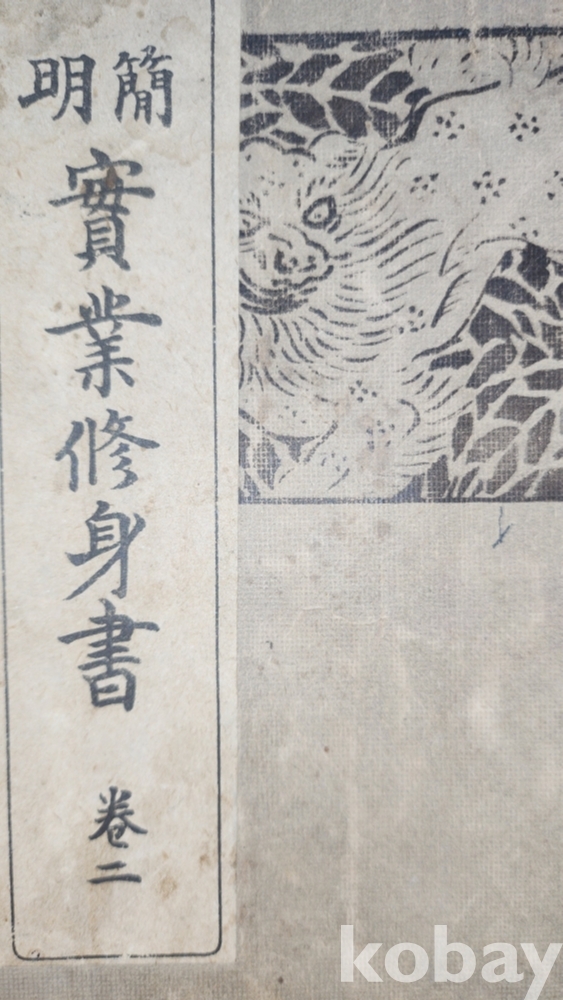 簡明
實業修身書
卷二
kobay